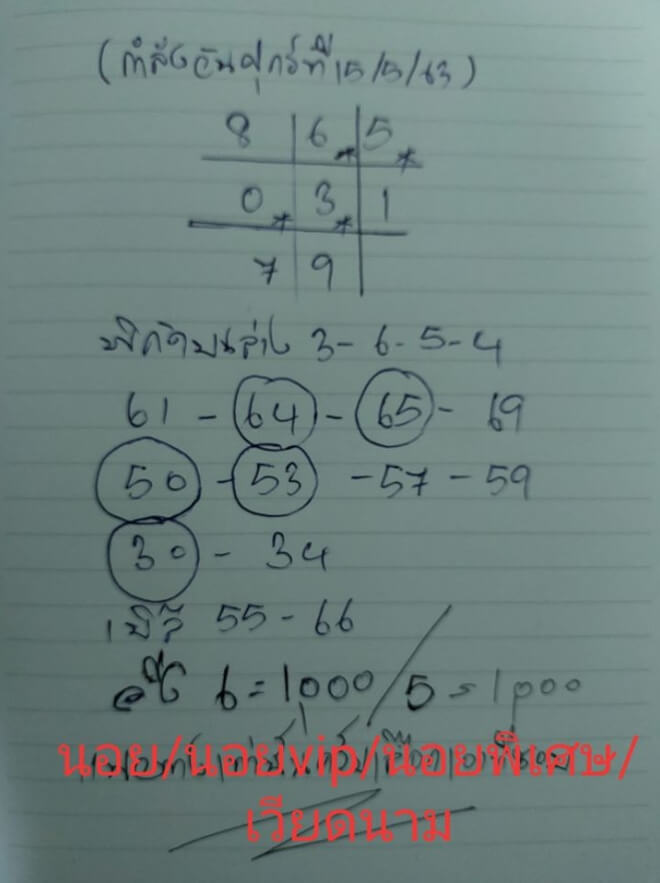 (กำลังวันศุกร์ที่ 15/5/63)
8 6 5
0 3 1
7 9
พิกัดบนล่าง 3-6-5-4
61 - 64 - 65 - 69
50 - 53 - 57 - 59
30 - 34
เบิ้ล 55 - 66
6 = 1000 / 5 = 1000
นอย/นอยvip/นอยพิเศษ/
เวียดนาม